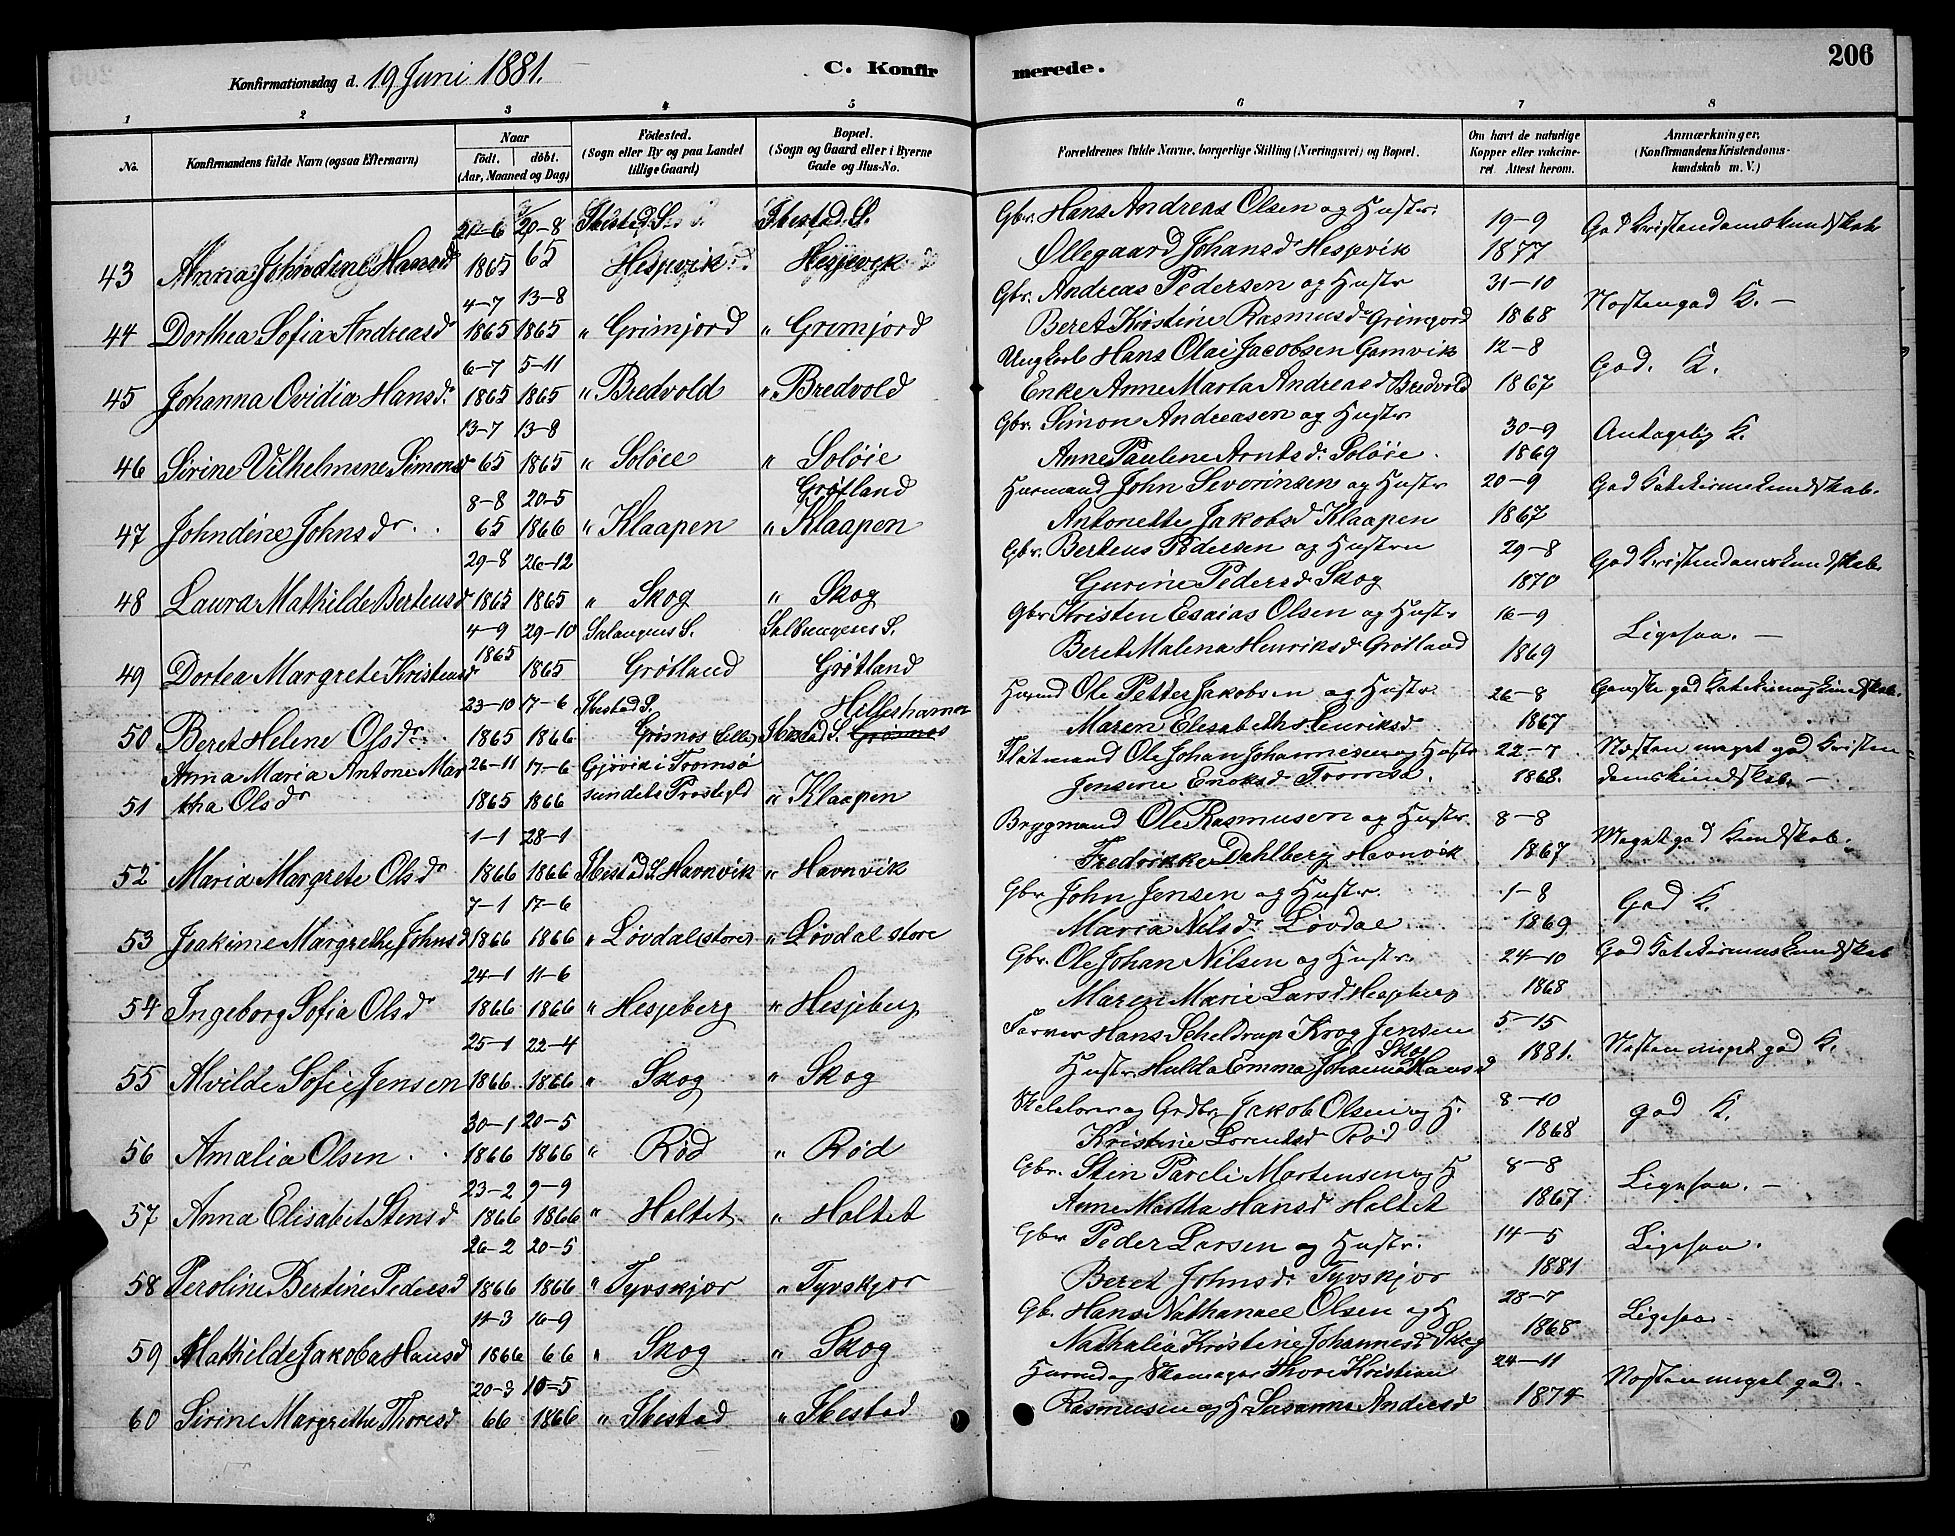 Konfirmationsdag d. 19 Juni 1881. C. Konfir merede. 206
1 2 3 4 5 6 7 8
No. Konfirmandens fulde Navn (ogsaa Efternavn) Naar födt. döbt. (Aar, Maaned og Dag) Födested. (Sogn eller By og paa Landet tillige Gaard) Bopæl. (Sogn og Gaard eller i Byerne Gade og Hus-No. Forældrenes fulde Navne, borgerlige Stilling (Næringsvei) og Bopæl. Om havt de naturlige Kopper eller vakcineret. Attest herom. Anmærkninger. (Konfirmandens Kristendomskundskab m. V.)
21-6 20-8 Ibestad S. Ibestad S. Gbr. Hans Andreas Olsen og Hustr. 19-9 God Kristendomskundskab
43 Anna Johndine Hansd 1865 65 Hesjevik Hesjevik Øllegaard Johansdr Hespvik 1877
4-7 13-8 Gbr. Andreas Pedersen og Hustr 31-10 Næsten god K. —
44 Dorthea Sofia Andreasdr 1865 1865 " Grimjord " Grimjord Beret Kristine Rasmusdr Grimjord 1868
6-7 5-11 Ungkarl Hans Olai Jacobsen Gamvik 12-8 God. K.
45 Johanna Ovidia Hansdr 1865 1865 " Bredvold " Bredvold Enke Anne Marta Andreasd Bredvold 1867
13-7 13-8 Gbr. Simon Andreasen og Hustr 30-9 Antagelig K.
46 Sirine Vilhelmine Simonsd 65 1865 " Soløie " Soløie Anne Pauline Arntsdr Soløie. 1869
8-8 20-5 Grøtland Husmand John Severinsen og Hustr 20-9 God Katekismekundskab.
47 Johndine Johnsdr 65 1866 " Klaapen " Klaapen Antonette Jakobsd Klaapen 1867
29-8 26-12 Gbr. Berteus Pedersen og Hustru 29-8 God Kristendomskundskab
48 Laura Mathilde Berteusd 1865 1865 " Skog " Skog Gurine Pedersd. Skog 1870
4-9 29-10 Salangens S. Salangens S. Gbr Kristen Esaias Olsen og Hustr 16-9 Ligesaa. —
49 Dortea Margrete Kristensdr 1865 1865 Grøtland Grøtland Beret Malena Henriksd Grøtland 1869
23-10 17-6 Ibestad S. Hilleshamn Husmd Ole Petter Jakobsen og Hustr. 26-8 Ganske god Katekismuskundskab.
50 Beret Helene Olsdr. 1865 1866 Grøsnes Lille Ibestad S. Grøsnes Maren Elisabeth Henriksd 1867
Anna Maria Antone Mar 26-11 17-6 Gjøvik i Tromsø Ole Johan Johannesen og Hustr 22-7 Næsten meget god Kristen-
51 tha Olsdr 1865 1866 sundets Prestegld " Klaapen Jensine Enoksd Tromsø. 1868. domskundskab. —
1-1 28-1 Brygmand Ole Rasmusen og Hustr. 8-8 Meget god Kundskab.
52 Maria Margrete Olsdr 1866 1866 Ibestad S Havnvik " Havnvik Fredrikke Dahlberg Havnvik 1867
7-1 17-6 Gbr John Jensen og Hustr. 1-8 God K.
53 Joakime Margrethe Johnsd 1866 1866 " Løvdal store " Løvdal store Maria Nilsdr Løvdal 1869
24-1 11-6 Gbr. Ole Johan Nilsen og Hustr. 24-10 God Katekismuskundskab
54 Ingeborg Sofia Olsdr 1866 1866 " Hesjeberg " Hesjeberg Maren Marie Larsd Hesjeberg 1868
25-1 22-4 Farver Hans Scheldrup Krog Jensen 5-15 Næsten meget god K.
55 Alvilde Sofie Jensen 1866 1866 " Skog " Skog Hustr Hulda Emma Johanne Hansd Skog 1881.
30-1 20-5 og Grdbr Jakob Olsen og H. 8-10 god K.
56 Amalia Olsen 1866 1866 " Rød " Rød Kristine Lorentsd Rød 1868
23-2 9-9 Gbr. Sten Pareli Mortensen og H 8-8 Ligesaa. —
57 Anna Elisabet Stensd 1866 1866 " Haltet " Haltet Anne Martha Hansd Haltet 1867
26-2 20-5 Gbr Peder Larsen og Hustr. 14-5 Ligesaa.
58 Peroline Bertine Pedersd 1866 1866 " Tyvskjær " Tyvskjær Beret Johnsdr Tyvskjær 1881
11-3 16-9 Gb. Hans Nathanael Olsen og H 28-7 Ligesaa-
59 Mathilde Jakoba Hansd 1866 66 " Skog " Skog Nathalia Kristine Johannesd Skog 1868
20-3 10-5 Husmd og Skomager Thore Kristian 24-11 Næsten meget god-
60 Sirine Margrethe Thoresd 66 1866 " Ibestad " Ibestad Rasmusen og H Susanna Andersd 1874